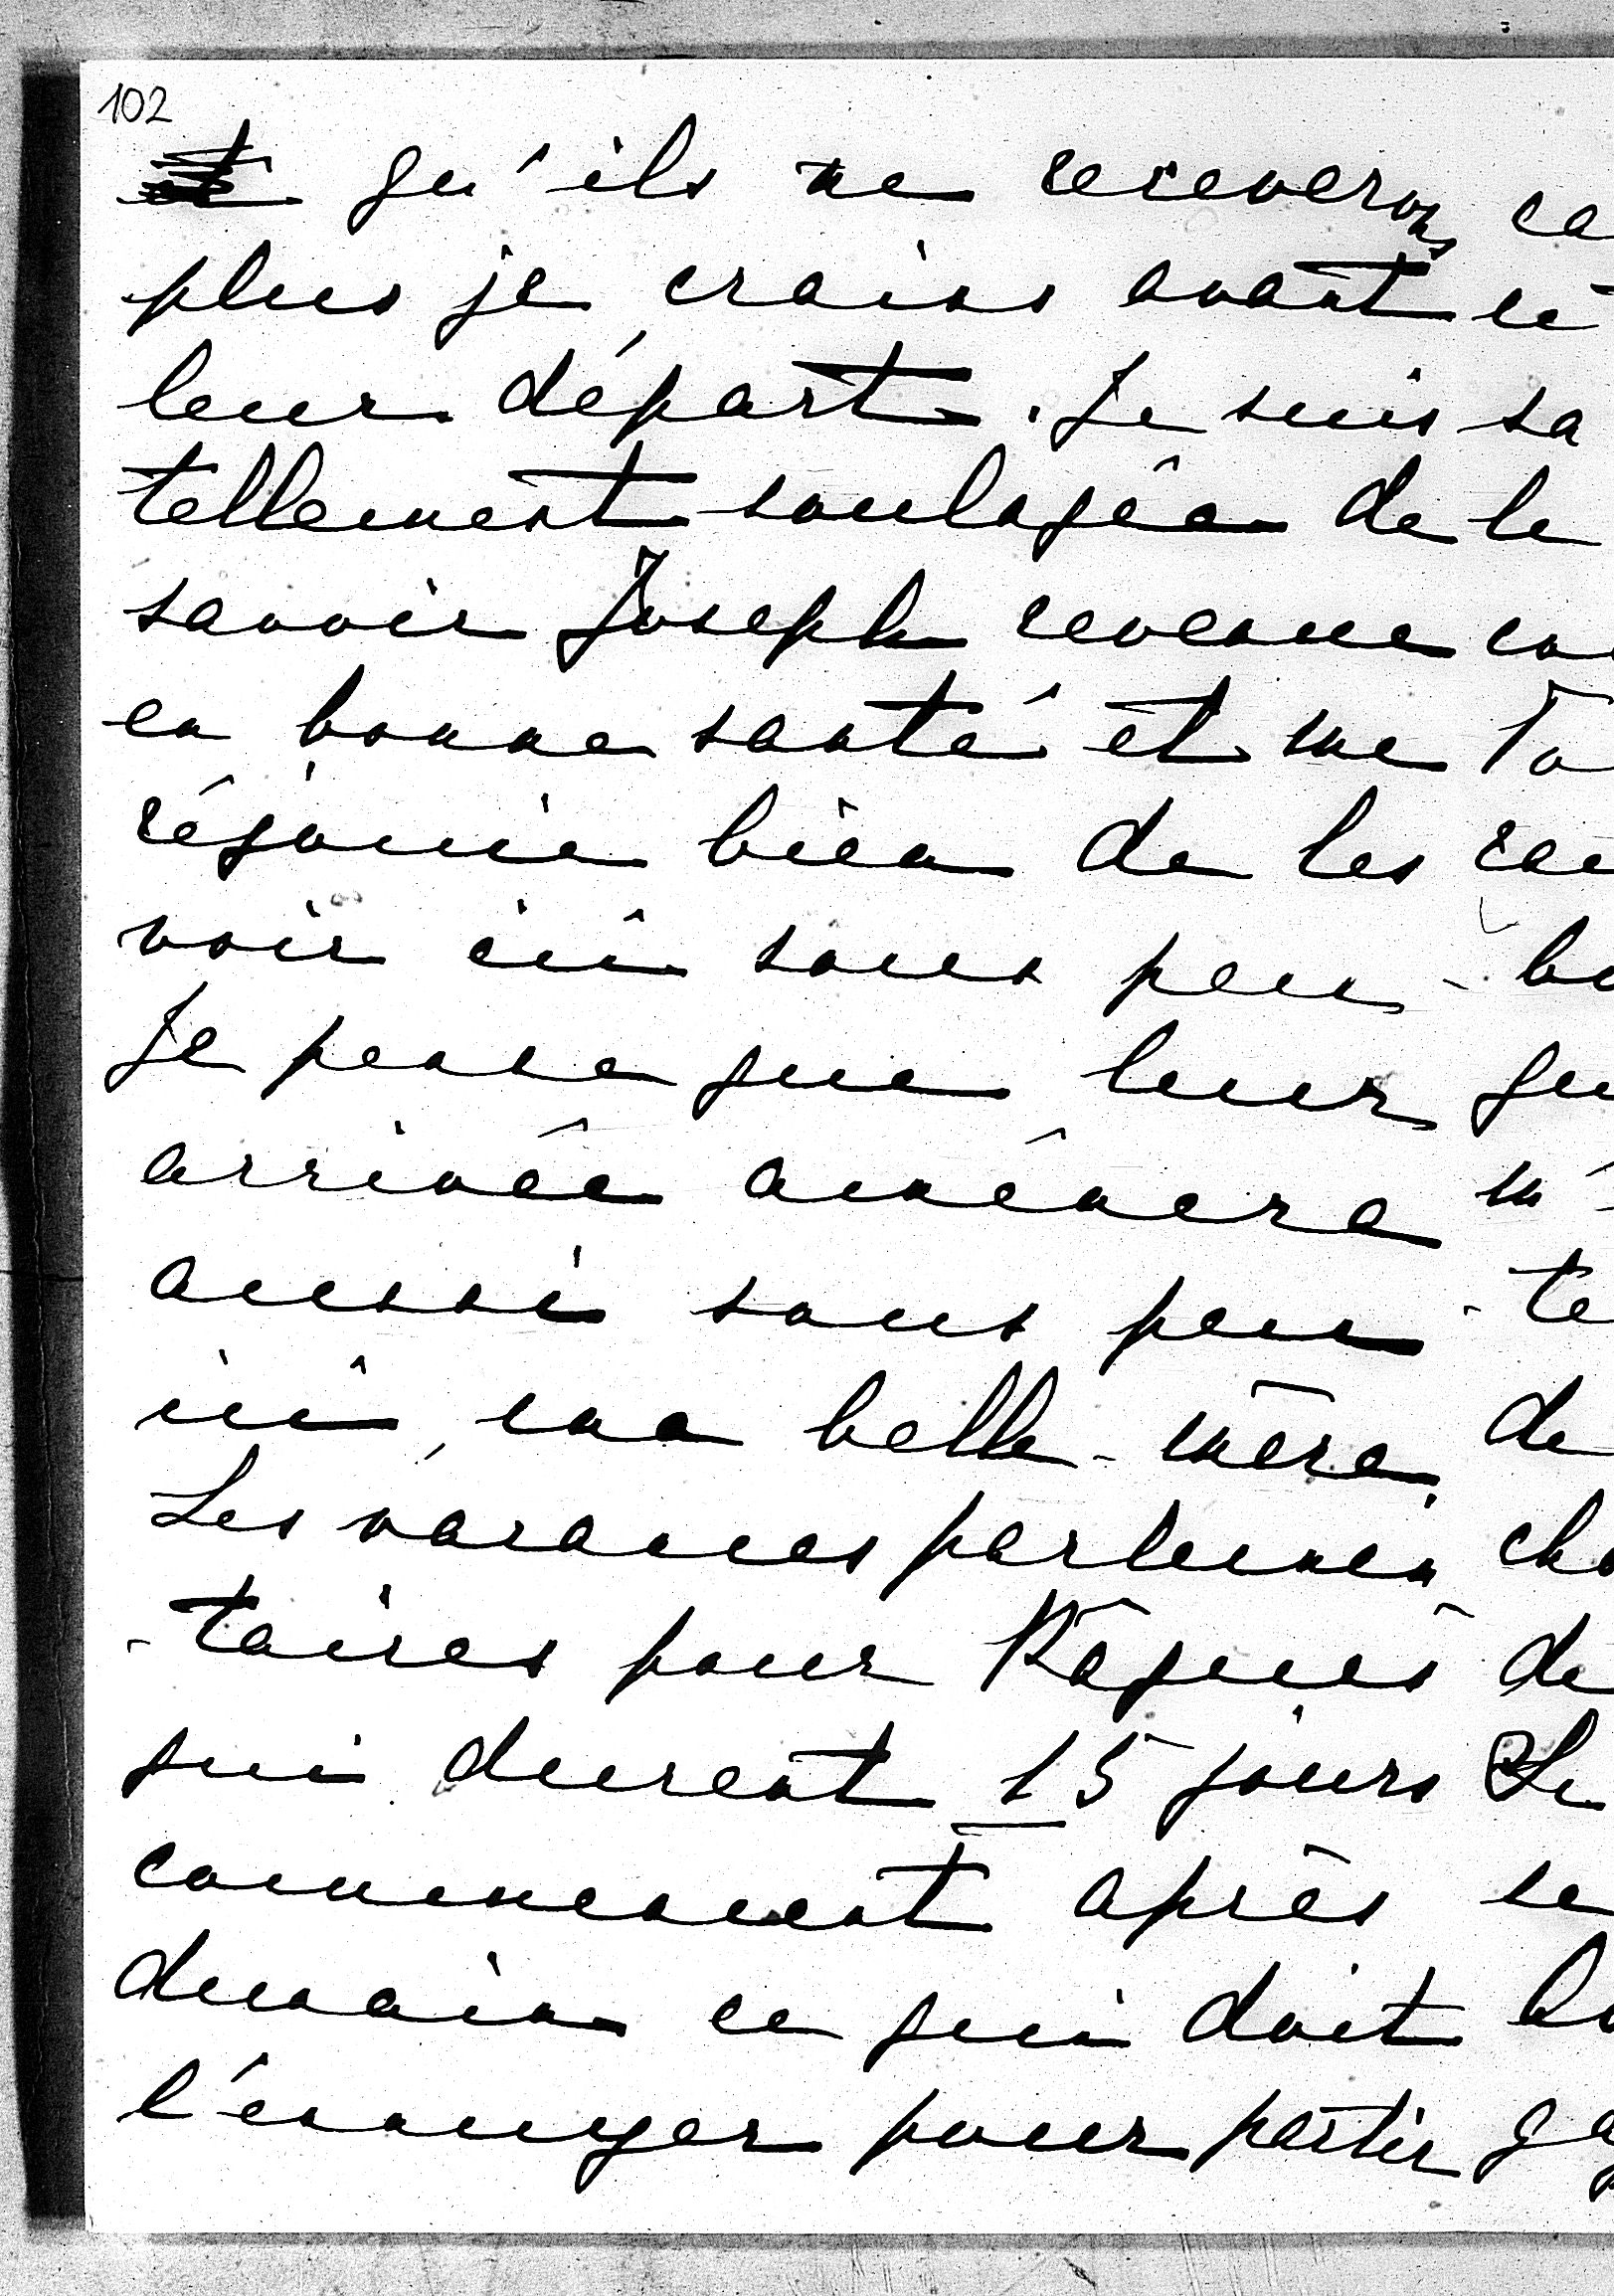 102
qu'ils ne recevrons ca
plus je crains avant
leur départ. Je suis sa
tellement soulagée de le
savoir Joseph revenue
en bonne santé et me
réjouie bien de les
voir ici sous peu -
Je pense que leur qu
arrivée amènera m'
aussi sous peu - te
ici, ma belle-mère, de
Les vacances parlemen
-taires pour Pâques de
qui durent 15 jours Le
commencent après
demain ce qui doit
l'ennuyer pour partir